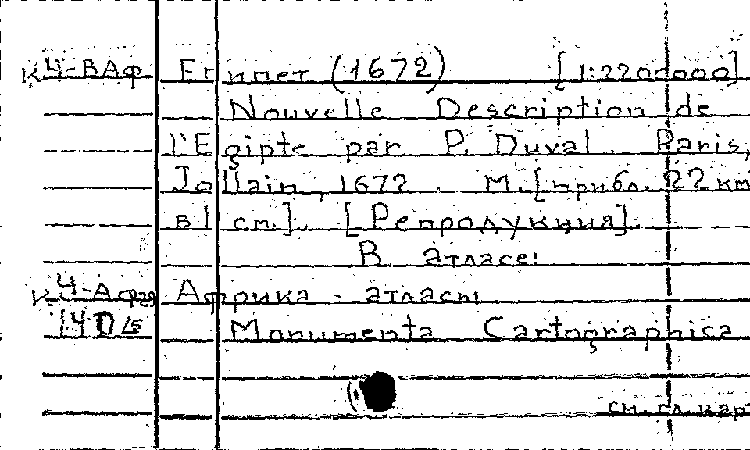 к4-ВАф Египет (1672) [1:2200000]
Nouvelle Description de
l'Egipte par P. Duval. Paris,
Jollain, 1672. М.[прибл. 22 км
в 1 см.]. [Репродукция].
В атласе:
к4-Аф Африка - атласы
14D/s Monumenta Cartographica
см. гл. кар